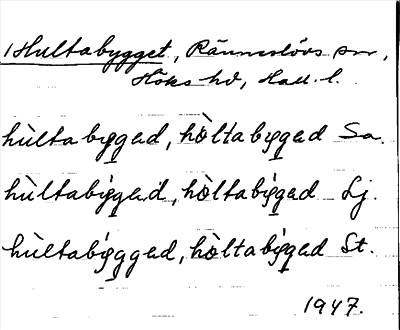 Hultabygget, Ränneslövs sn,
Höks hd, Hall. l.
hùltabyg̣ed, hòltabyg̣ed Sa.
hùltabýg̣ed, hòltabýg̣ed Lj.
hùltabýgged, hòltabýg̣ed St.
1947.